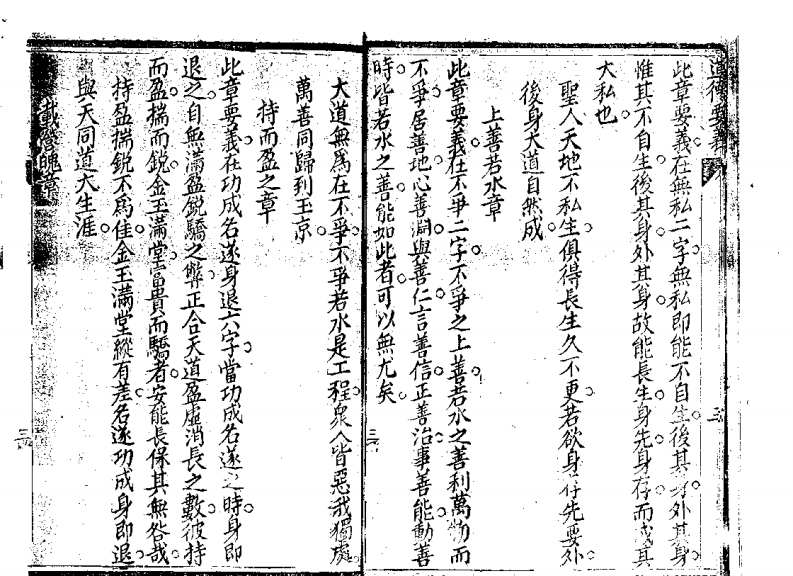 道德要義
三
此章要義在無私二字無私即能不自生後其身外其身
惟其不自生後其身外其身故能長生身先身存而成其
大私也
聖人天地不私生俱得長生久不更若欲身存先要外
後身天道自然成
上善若水章
此章要義在不爭二字不爭之上善若水之善利萬物而
不爭居善地心善淵與善仁言善信正善治事善能動善
時皆若水之善能如此者可以無尤矣
三
大道無爲在不爭不爭若水是工程衆人皆惡我獨處
萬善同歸到玉京
持而盈之章
此章要義在功成名遂身退六字當功成名遂之時身即
退之自無滿盈銳驕之弊正合天道盈虛消長之數彼持
而盈揣而銳金玉滿堂富貴而驕者安能長保其無咎哉
持盈揣銳不爲佳金玉滿堂縱有差名遂功成身即退
與天同道大生涯
載營魄章
三